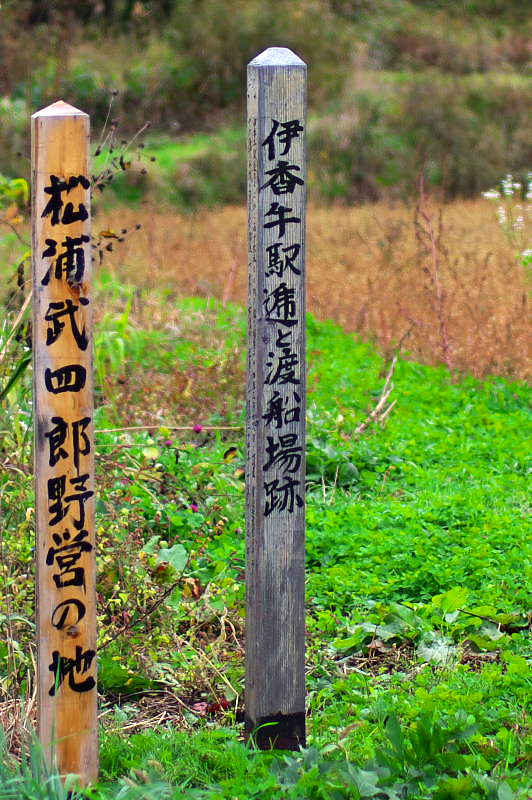 伊香牛駅逓と渡船場跡
松浦武四郎野営の地